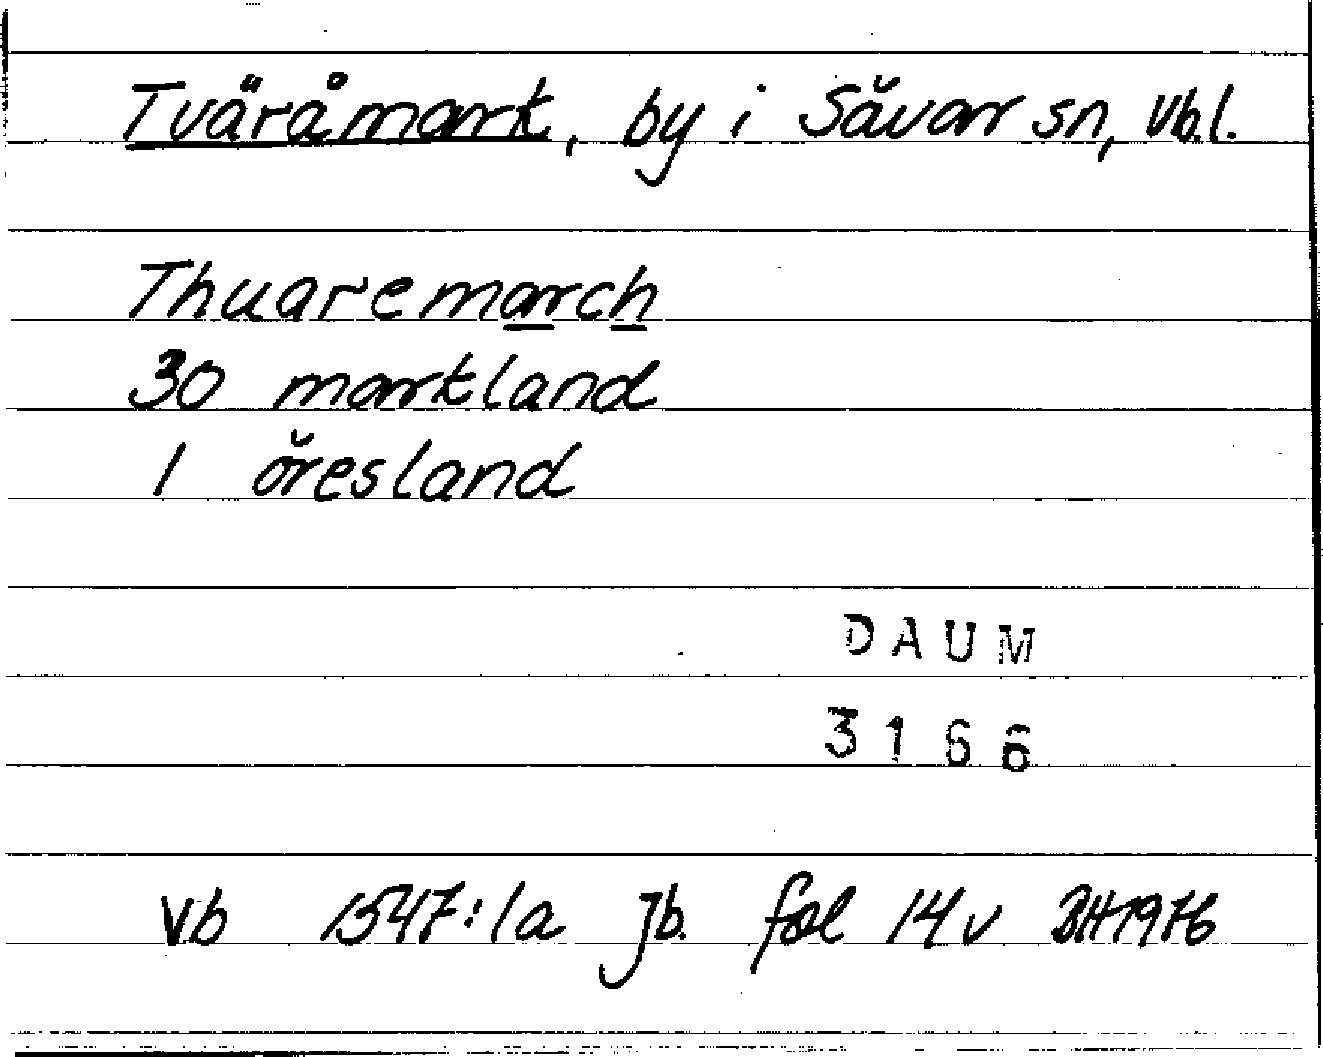 Tväråmark, by i Sävar sn, Vb.l.
Thuaremarch
30 markland
1 öresland
DAUM
3166
Vb 1547:1a Jb. fol 14v BH1976